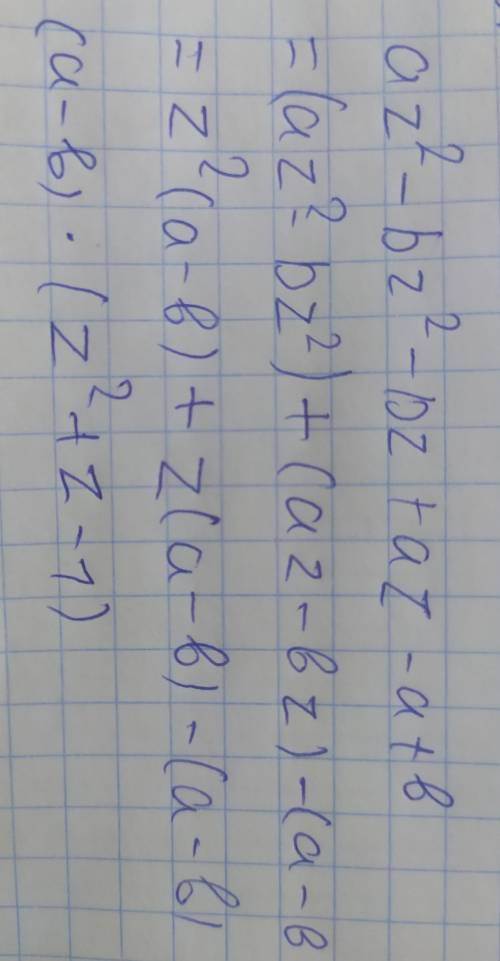 az² - bz² - bz + az - a + b
= (az² - bz²) + (az - bz) - (a - b
= z²(a - b) + z(a - b) - (a - b)
(a - b) · (z² + z - 1)